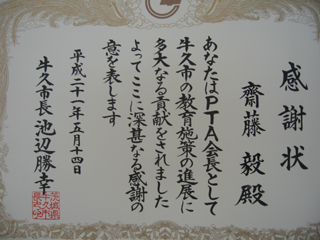 感謝状
齋藤 毅 殿
あなたはPTA会長として
牛久市の教育施策の進展に
多大なる貢献をされました
よってここに深甚なる感謝の
意を表します
平成二十一年五月十四日
牛久市長 池辺勝幸